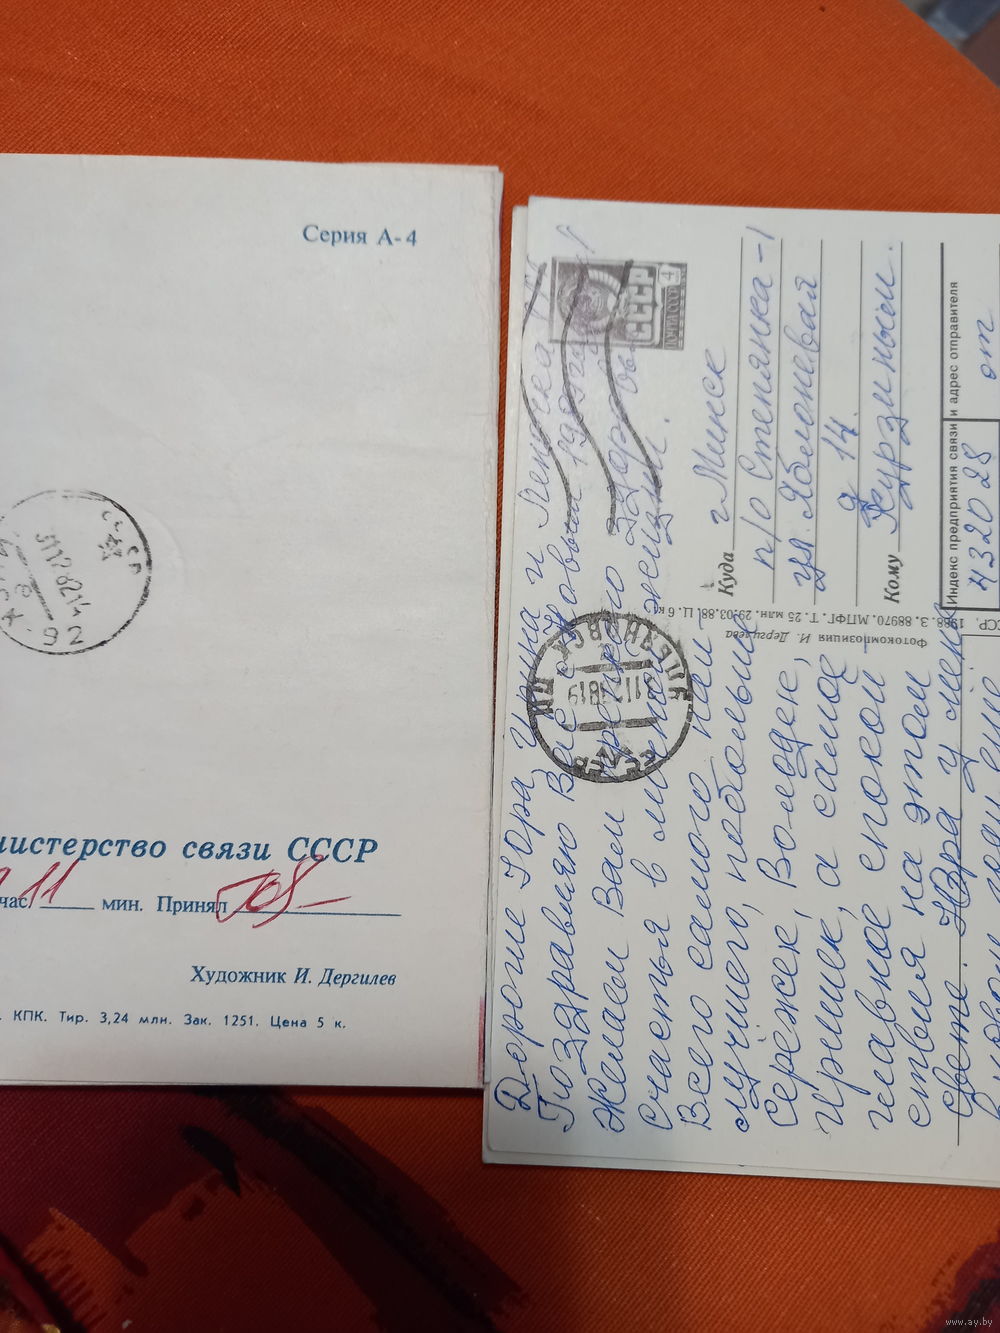 Серия А-4
СССР
92
министерство связи СССР
час. 11 мин. Принял
Художник И. Дергилев
КПК. Тир. 3,24 млн. Зак. 1251. Цена 5 к.
Дорогие Юра, Инна и Леночка
Поздравляю Вас с Новым 1989 г.
Желаем Вам крепкого здоровья
счастья в жизни.
Всего самого наи-
лучшего, побольше
Сережек, Володек,
Иришек, а самое
главное спокой
ствия на этом
свете. Юра у меня
ПОЧТА СССР 4
СССР
УЛЬЯНОВСК
СССР
Куда г Минск
п/о Степянка-1
ул. Яблоневая
д 14.
Кому Курзиным.
Индекс предприятия связи и адрес отправителя
432028 от
Фотокомпозиция И. Дергилева
1988. З. 88970. МПФГ. Т. 25 млн. 29.03.88. Ц. 6 к.
www.ay.by